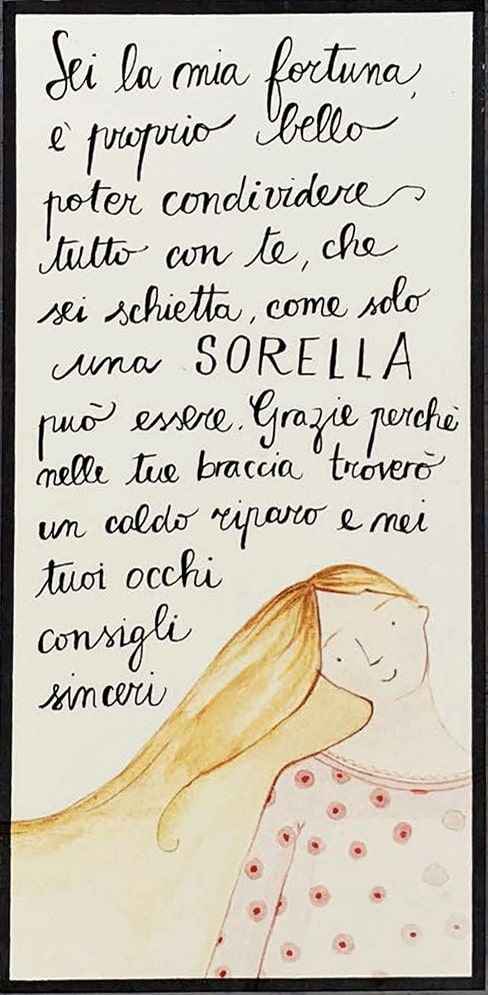 Sei la mia fortuna,
e' proprio bello
poter condividere
tutto con te, che
sei schietta, come solo
una SORELLA
può essere. Grazie perchè
nelle tue braccia troverò
un caldo riparo e nei
tuoi occhi
consigli
sinceri